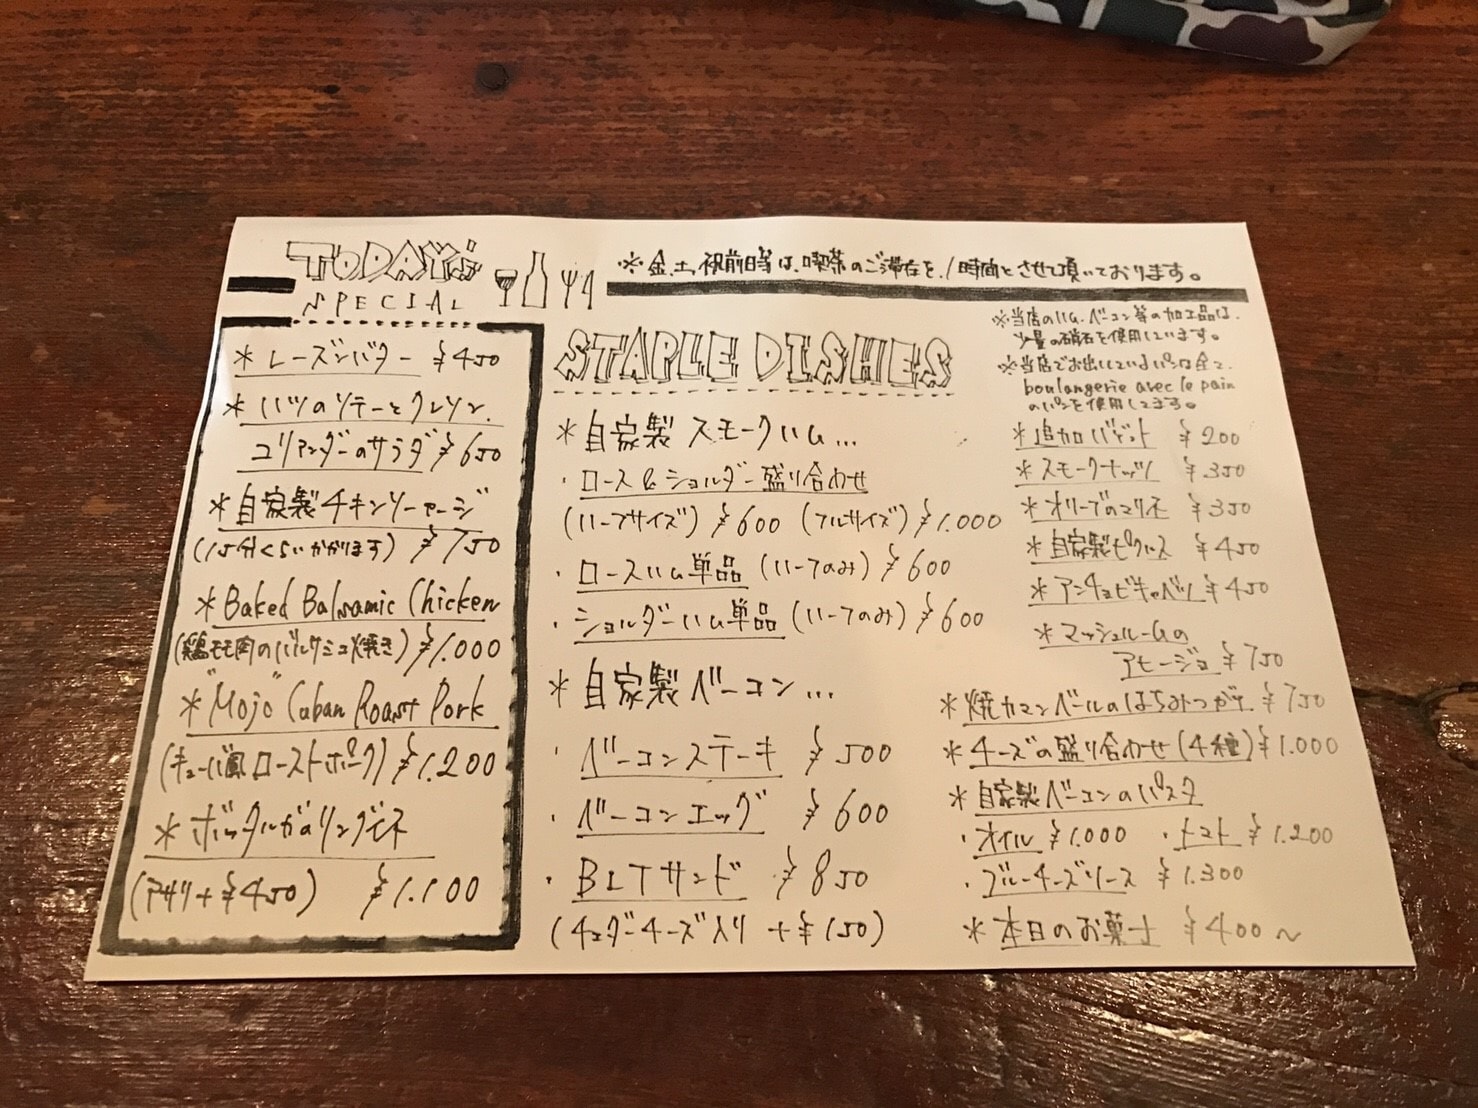 TODAY'S
SPECIAL
※金、土、祝前日等は、喫茶のご滞在を、1時間とさせて頂いております。
* レーズンバター ¥450
* ハツのソテーとクレソン、
コリアンダーのサラダ ¥650
* 自家製チキンソーセージ
(15分くらいかかります) ¥750
* Baked Balsamic Chicken
(鶏モモ肉のバルサミコ焼き) ¥1.000
* "Mojo" Cuban Roast Pork
(キューバ風ローストポーク) ¥1.200
* ボッタルガのリングイネ
(アサリ+¥450) ¥1.100
STAPLE DISHES
* 自家製スモークハム...
・ロース&ショルダー盛り合わせ
(ハーフサイズ) ¥600 (フルサイズ) ¥1.000
・ロースハム単品 (ハーフのみ) ¥600
・ショルダーハム単品 (ハーフのみ) ¥600
* 自家製ベーコン...
・ベーコンステーキ ¥500
・ベーコンエッグ ¥600
・BLTサンド ¥850
(チェダーチーズ入り +¥150)
※当店のハム、ベーコン等の加工品は、
少量の硝石を使用しています。
※当店でお出ししているパンは全て、
boulangerie avec le pain
のパンを使用してます。
* 追加バゲット ¥200
* スモークナッツ ¥350
* オリーブのマリネ ¥350
* 自家製ピクルス ¥450
* アンチョビキャベツ ¥450
* マッシュルームの
アヒージョ ¥750
* 焼カマンベールのはちみつがけ ¥750
* チーズの盛り合わせ(4種) ¥1.000
* 自家製ベーコンのパスタ
・オイル ¥1.000 ・トマト ¥1.200
・ブルーチーズソース ¥1.300
* 本日のお菓子 ¥400〜